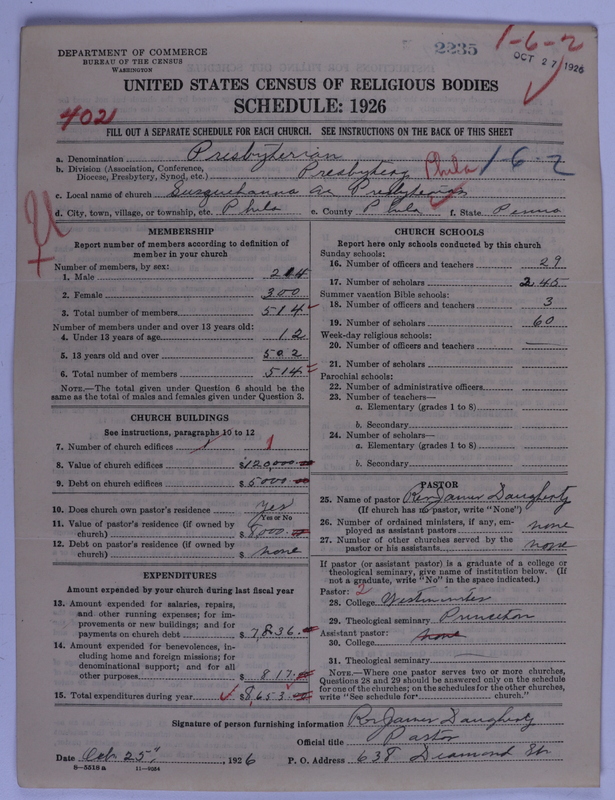 DEPARTMENT OF COMMERCE
BUREAU OF THE CENSUS
WASHINGTON
2235
1-6-2
OCT 27 1926
UNITED STATES CENSUS OF RELIGIOUS BODIES
SCHEDULE: 1926
4021
FILL OUT A SEPARATE SCHEDULE FOR EACH CHURCH. SEE INSTRUCTIONS ON THE BACK OF THIS SHEET
a. Denomination Presbyterian
b. Division (Association, Conference, Diocese, Presbytery, Synod, etc.) Presbytery Phila 1-6-2
c. Local name of church Susquehanna Av Presbyterian
d. City, town, village, or township, etc. Phila e. County Phila f. State Penna
MEMBERSHIP
Report number of members according to definition of
member in your church
Number of members, by sex:
1. Male 214
2. Female 300
3. Total number of members 514
Number of members under and over 13 years old:
4. Under 13 years of age 12
5. 13 years old and over 502
6. Total number of members 514
NOTE.—The total given under Question 6 should be
same as the total of males and females given under Question 3.
CHURCH BUILDINGS
See instructions, paragraphs 10 to 12
7. Number of church edifices 1
8. Value of church edifices $120,000.00
9. Debt on church edifices $5000.00
10. Does church own pastor's residence yes
Yes or No
11. Value of pastor's residence (if owned by
church) $8,000.00
12. Debt on pastor's residence (if owned by
church) $ none
EXPENDITURES
Amount expended by your church during last fiscal year
13. Amount expended for salaries, repairs,
and other running expenses; for im-
provements or new buildings; and for
payments on church debt $7,836.00
14. Amount expended for benevolences, in-
cluding home and foreign missions; for
denominational support; and for all
other purposes $817.00
15. Total expenditures during year $8,653.00
CHURCH SCHOOLS
Report here only schools conducted by this church
Sunday schools:
16. Number of officers and teachers 29
17. Number of scholars 245
Summer vacation Bible schools:
18. Number of officers and teachers 3
19. Number of scholars 60
Week-day religious schools:
20. Number of officers and teachers
21. Number of scholars
Parochial schools:
22. Number of administrative officers
23. Number of teachers—
a. Elementary (grades 1 to 8)
b. Secondary
24. Number of scholars—
a. Elementary (grades 1 to 8)
b. Secondary
PASTOR
25. Name of pastor Rev James Daugherty
(If church has no pastor, write "None")
26. Number of ordained ministers, if any, em-
ployed as assistant pastors none
27. Number of other churches served by the
pastor or his assistants none
If pastor (or assistant pastor) is a graduate of a college or
theological seminary, give name of institution below. (If
not a graduate, write "No" in the space indicated.)
Pastor: 2
28. College Westminster
29. Theological seminary Princeton
Assistant pastor: none
30. College
31. Theological seminary
NOTE.—Where one pastor serves two or more churches,
Questions 28 and 29 should be answered only on the schedule
for one of the churches; on the schedules for the other churches,
write "See schedule for church."
Signature of person furnishing information Rev James Daugherty
Official title Pastor
Date Oct 25", 1926 P. O. Address 638 Diamond Str
8-5518 a 11-9034